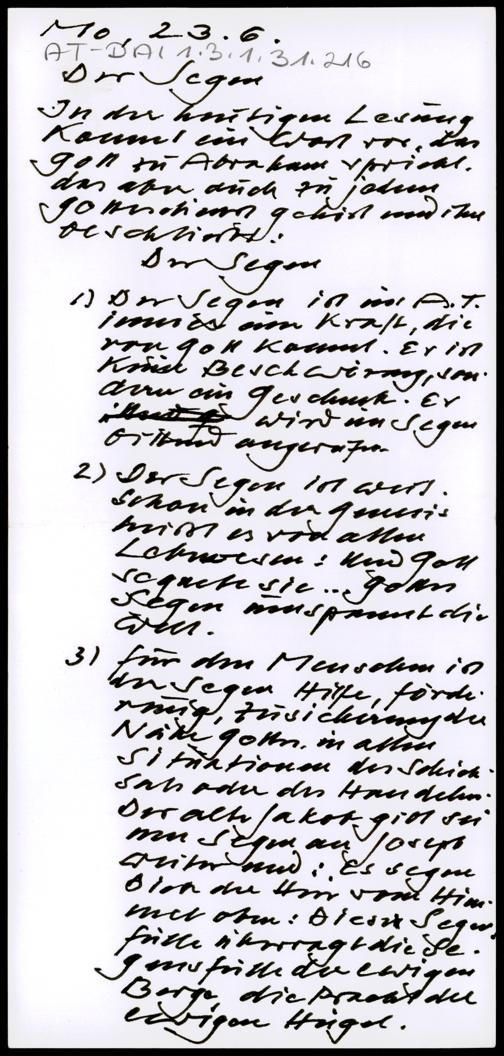 Mo, 23.6.
AT-DAI 1.3.1.31.216
Der Segen
In der heutigen Lesung
kommt ein Wort vor, das
Gott zu Abraham spricht.
das aber auch zu jedem
Gottesdienst gehört und ihn
beschließt:
Der Segen
1) Der Segen ist im A.T.
immer eine Kraft, die
von Gott kommt. Er ist
keine Beschwörung, son-
dern ein Geschenk. Er
wird im Segen
bittend angerufen.
2) Der Segen ist weit.
Schon in der Genesis
heißt es von allen
Lebewesen: Und Gott
segnete sie... Gottes
Segen umspannt die
Welt.
3) Für den Menschen ist
der Segen Hilfe, förde-
rung, Zusicherung der
Nähe Gottes in allen
Situationen des Schick-
sals oder des Handelns.
Der alte Jakob gibt sei
nen Segen an Joseph
weiter und: Es segen
Dich der Herr vom Him-
mel oben: Dieser Segen
fülle überragt die Se-
gensfülle der ewigen
Berge, die Pracht der
ewigen Hügel.